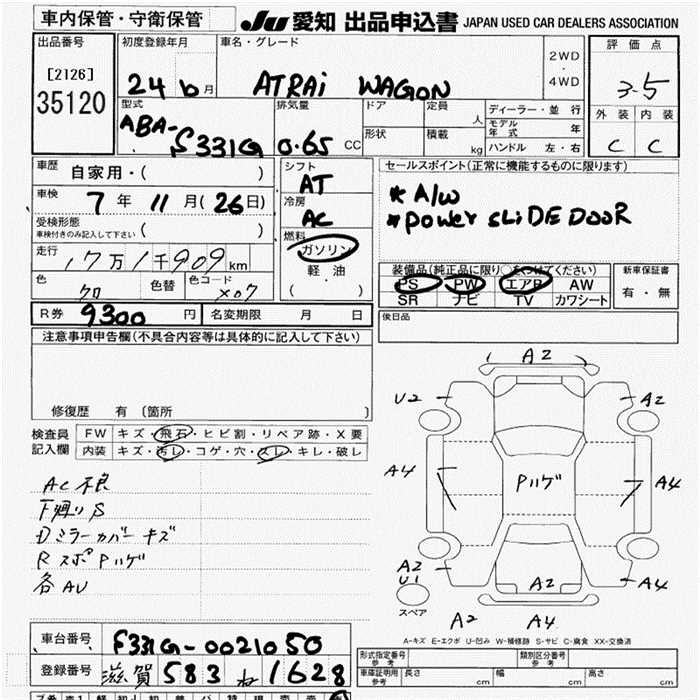 車内保管・守衛保管
JU 愛知 出品申込書 JAPAN USED CAR DEALERS ASSOCIATION
出品番号
[2126]
35120
初度登録年月
24 6月
車名・グレード
ATRAi WAGON
2WD
・
4WD
評価点
3.5
外装 内装
C C
型式
ABA-S331G
排気量
0.65 CC
ドア
形状
定員 人
積載 kg
ディーラー・並行
モデル年式 年
ハンドル 左・右
車歴
自家用・( )
車検
7年 11月(26日)
受検形態
車検付きのみ記入して下さい ( )
走行
17万1千909km
色
クロ
色替
色コード
X07
シフト
AT
冷房
AC
燃料
ガソリン
軽油
( ・ )
セールスポイント(正常に機能するものに限ります)
* A/W
* POWER SLiDE DOOR
装備品(純正品に限り○をつけてください)
PS PW エアB AW
SR ナビ TV カワシート
新車保証書
有・無
R券 9300円
名変期限 月 日
後日品
注意事項申告欄(不具合内容等は具体的に記入して下さい)
修復歴 有 〔箇所 〕
検査員
記入欄
FW キズ・飛石・ヒビ割・リペア跡・X要
内装 キズ・汚レ・コゲ・穴・スレ・キレ・破レ
AC不良
下廻りS
Dミラーカバーキズ
RスポPハゲ
各AU
A2
U2
A2
A4
Pハゲ
A4
A2
U1
A2
A4
スペア
A2
A4
A-キズ E-エクボ U-凹み W-補修跡 S-サビ C-腐食 XX-交換済
車台番号 S331G-0021050
登録番号 滋賀 583 ね 1628
形式指定番号
参考
類別区分番号
参考
車庫証明用
参考
長さ cm
幅 cm
高さ cm